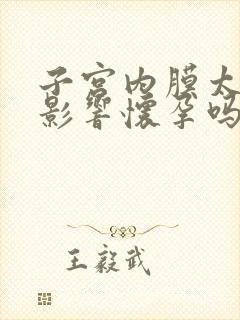 子宫内膜太
影响怀孕吗
王毅武